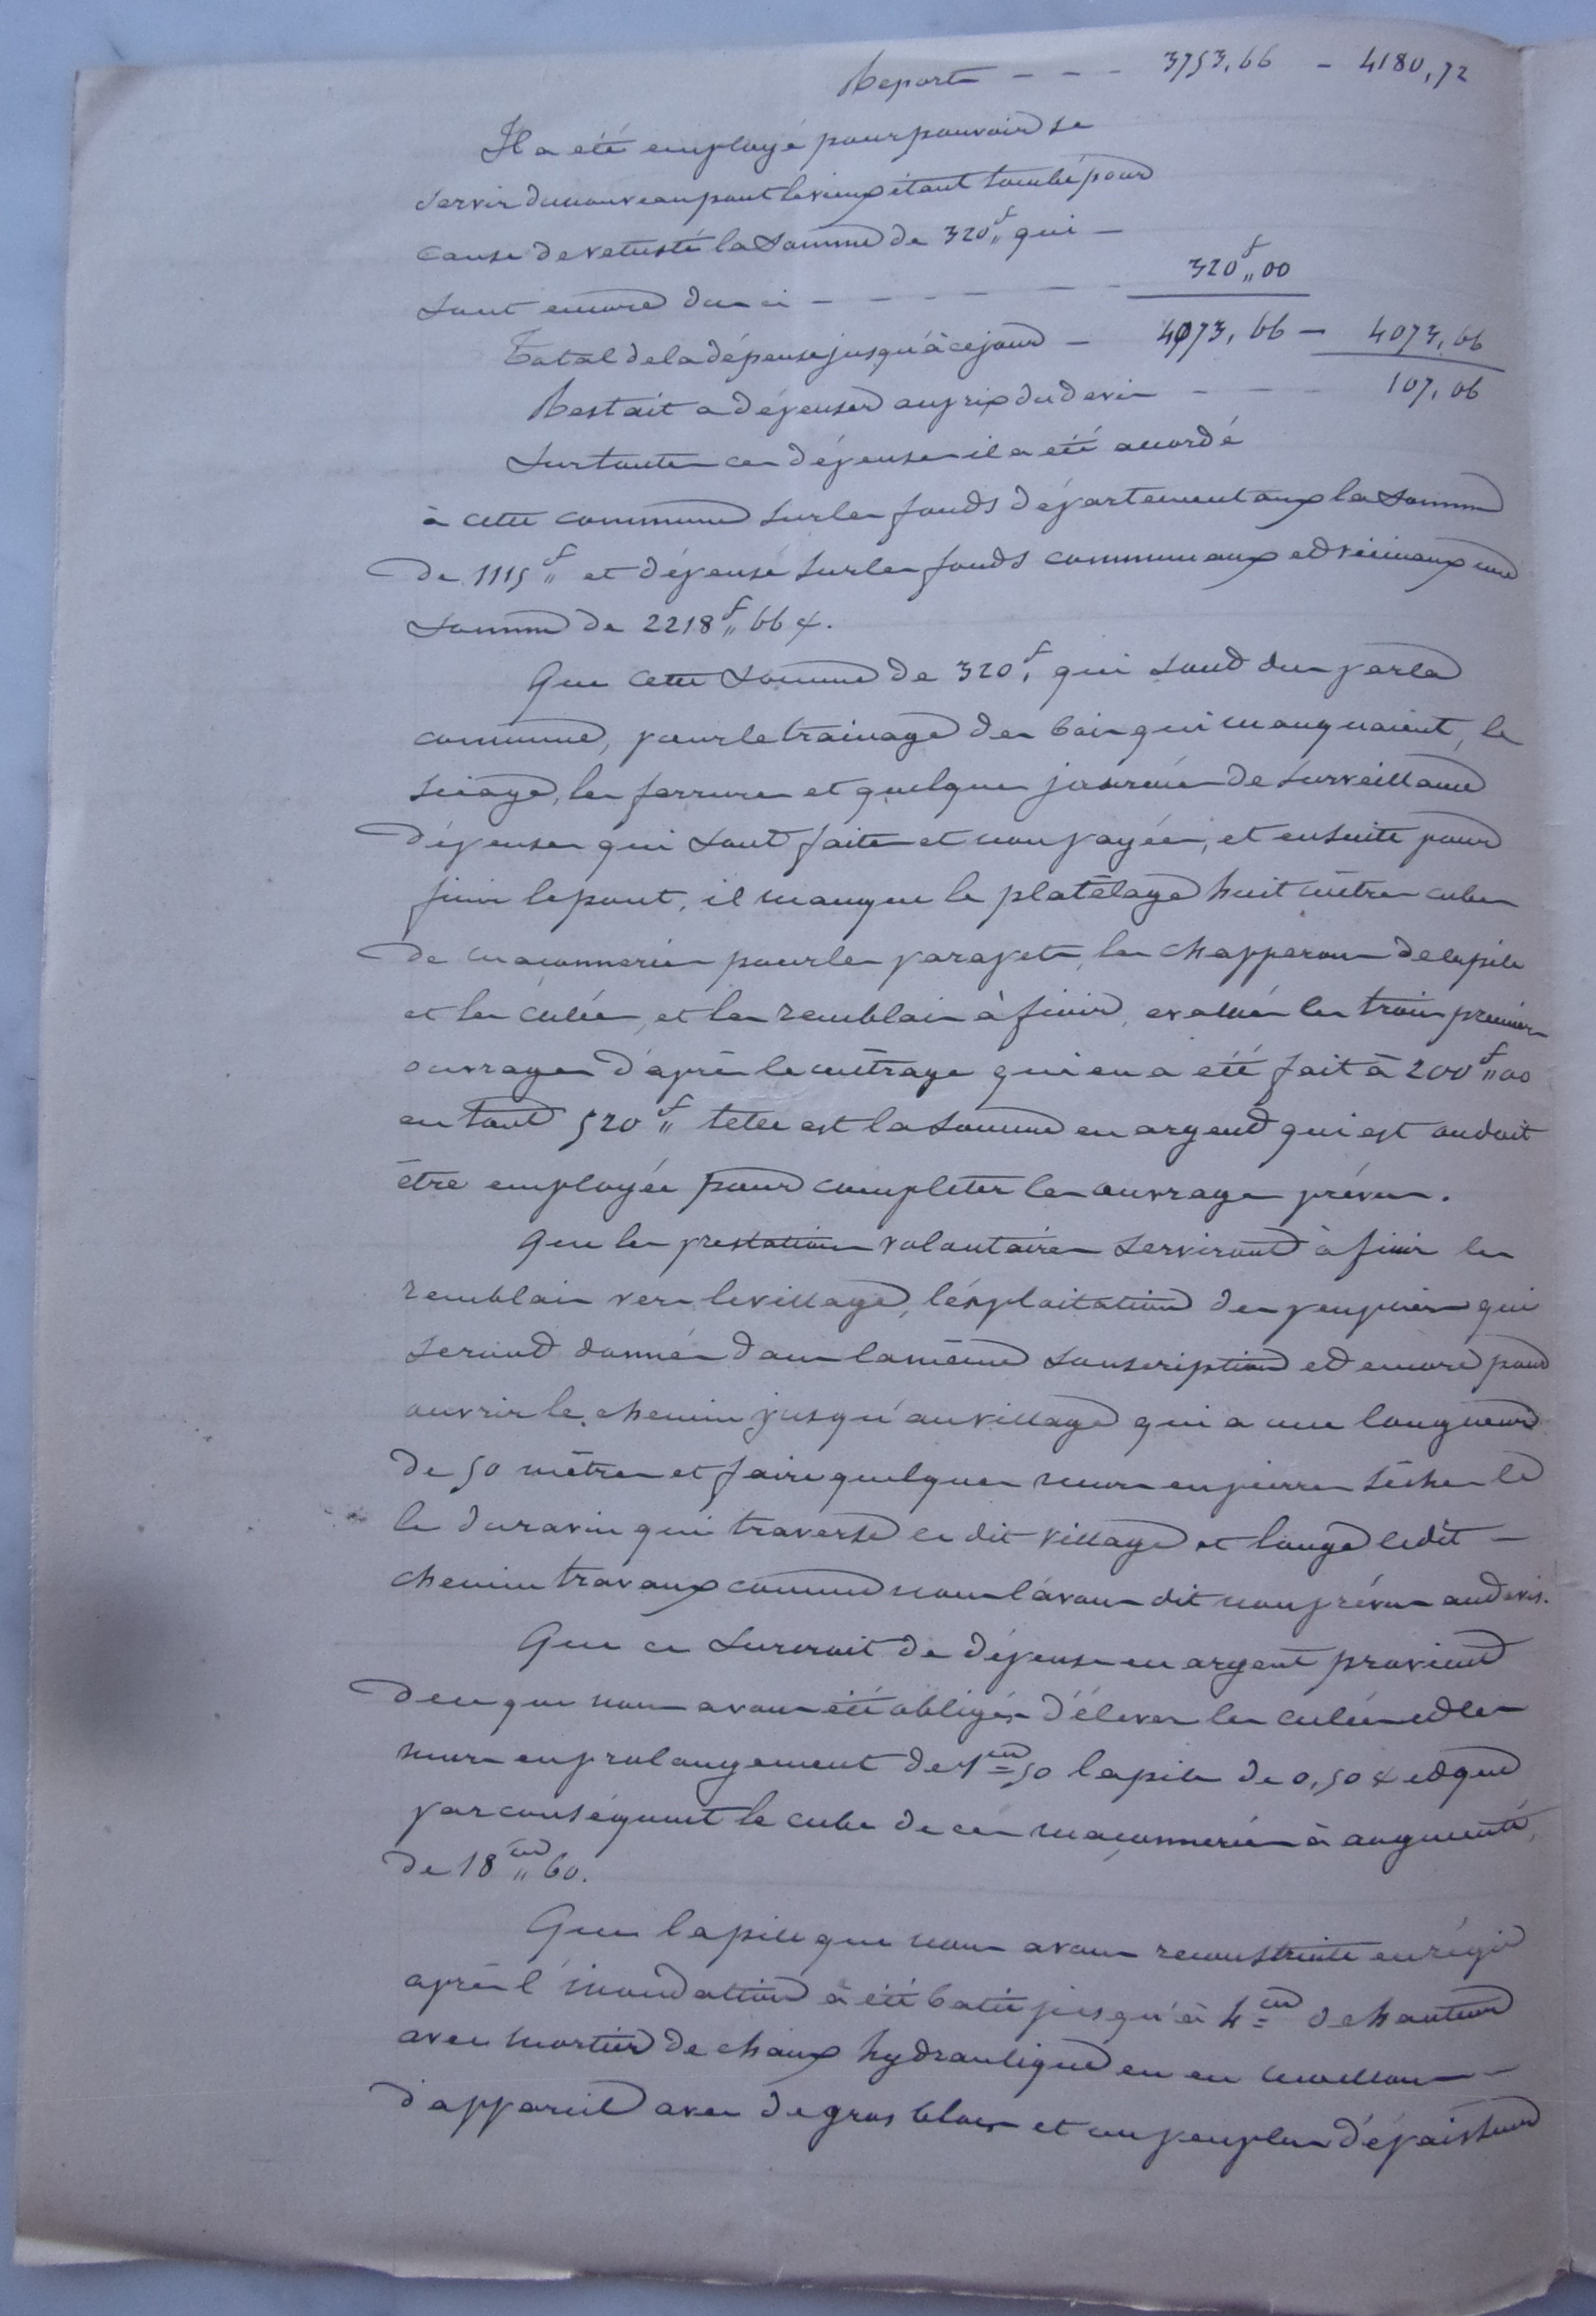 Report - - - 3753,66 - 4180,72
Il a été employé pour pouvoir se
servir du nouveau pont le vieux étant tombé pour
cause de vetusté la somme de 320f„ qui —
sont encore dus ci - - - - - - 320f„00
Total de la dépense jusqu'à ce jour - 4073,66 - 4073,66
Restait a dépenser au prix du devis - - - 107,06
Sur toutes ces dépenses il a été accordé
à cette commune sur les fonds départementaux la somme
de 1115f„ et dépensé sur les fonds communeaux et vicinaux une
somme de 2218f„66 c.
Que cette somme de 320f, qui sont dus par la
commune, pour le trainage des bois qui manquaient, le
sciage, les ferrures et quelques journées de surveillance
dépenses qui sont faites et non payées, et ensuite pour
finir le pont, il manque le platélage huit mètres cubes
de maçonneries pour les parapets, les chapperons de la pile
et les culées, et les remblais à finir, evalués les trois premiers
ouvrages d'après le métrage qui en a été fait à 200f„00
en tout 520f„ telle est la somme en argent qui est ou doit
être employée pour completer les ouvrages prévus.
Que les prestations volontaires serviront à finir les
remblais vers le village, l'éxploitation des peupliers qui
seront donnés dans la même souscription et encore pour
ouvrir le chemin jusqu'au village qui a une longueur
de 50 mètres et faire quelques murs en pierres sèches le
le du ravin qui traverse ce dit village et longe ledit —
chemin travaux comme nous l'avons dit non prévus au devis.
Que ce surcroit de dépense en argent provient
de ce que nous avons été obligés d'élever les culées et les
murs en prolongement de 1m=50 la pile de 0,50 c et que
par conséquent le cube de ces maçonneries à augmenté,
de 18m„60.
Que la pile que nous avons reconstruite en régie
après l'inondation à été batie jusqu'à 4m= de hauteur
avec mortier de chaux hydraulique en en moellons —
d'appareil avec de gros blocs et un peu plus d'épaisseur